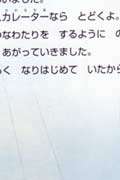 カレーターなら とどくよ。
なわたりを するように の
あがっていきました。
く なりはじめて いたから